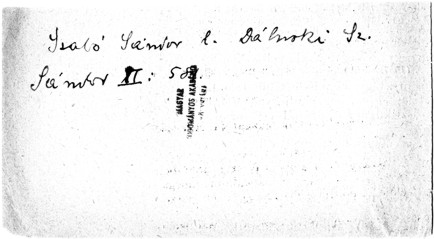 Szabó Sándor l. Dálnoki Sz.
Sándor II: 58.
MAGYAR
TUDOMÁNYOS AKADÉMIA